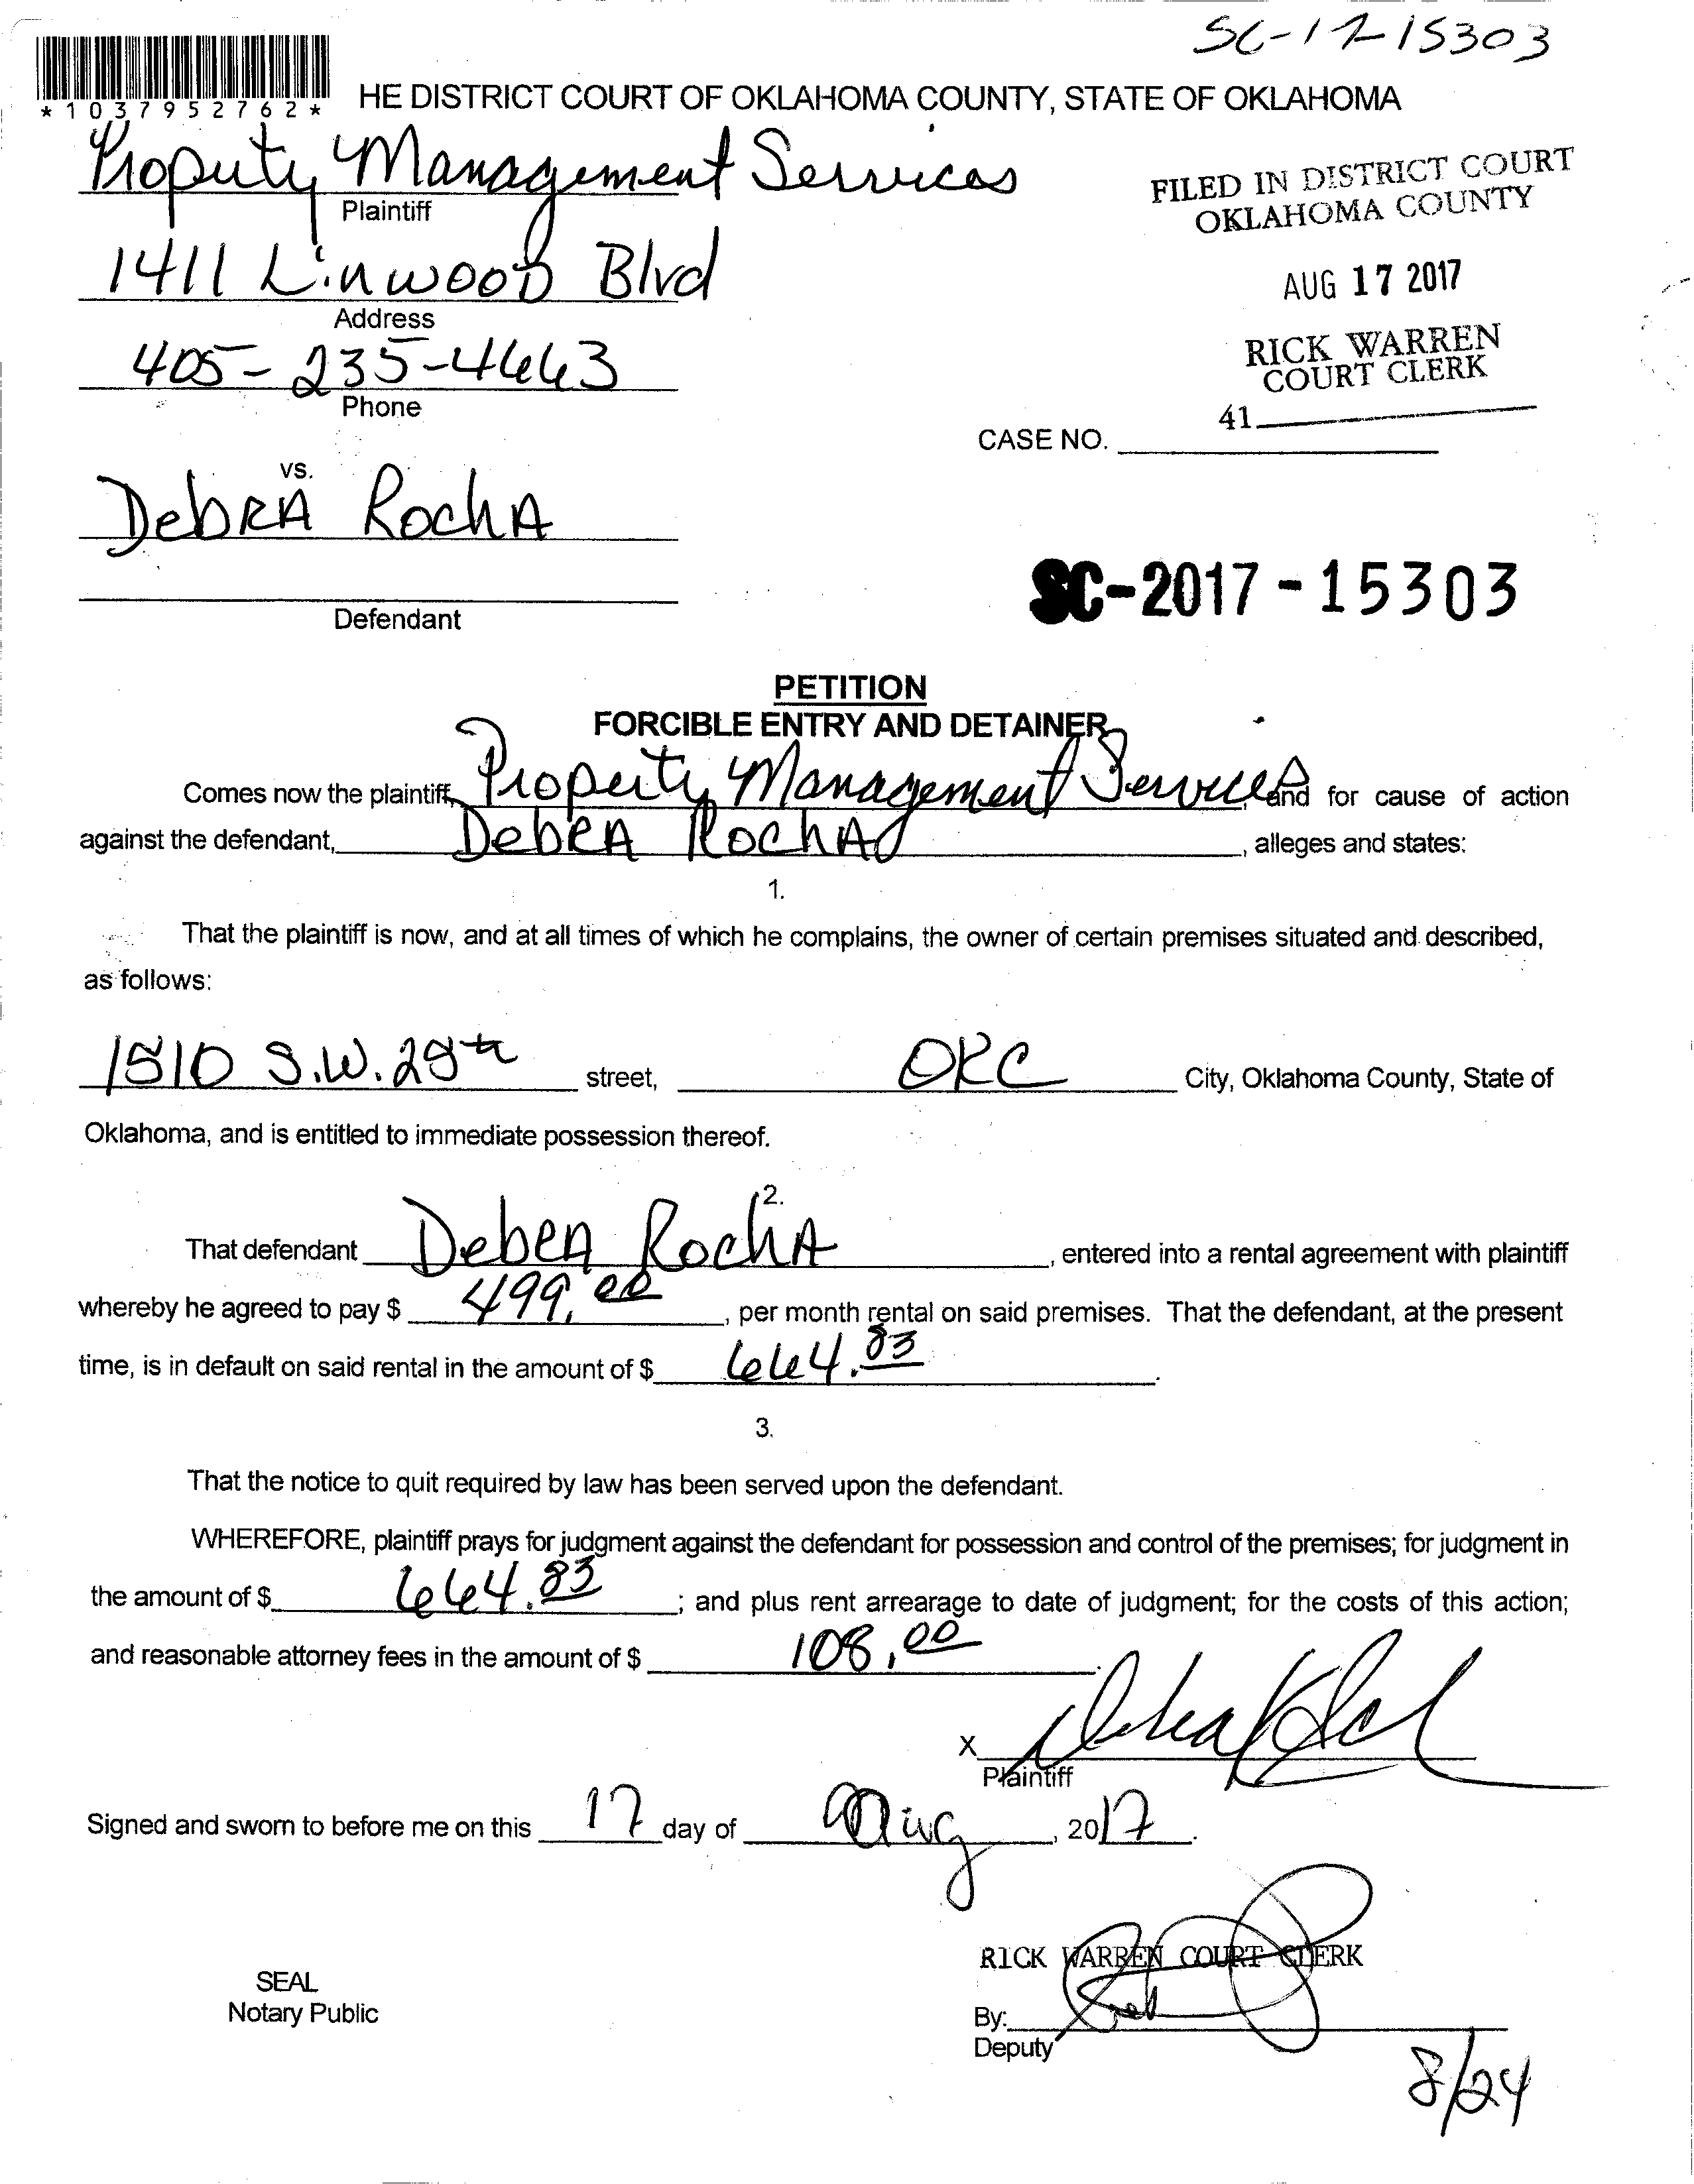 SC-17-15303
*1037952762*
HE DISTRICT COURT OF OKLAHOMA COUNTY, STATE OF OKLAHOMA
Property Management Services
Plaintiff
FILED IN DISTRICT COURT
OKLAHOMA COUNTY
1411 Linwood Blvd
Address
AUG 17 2017
405-235-4663
Phone
RICK WARREN
COURT CLERK
41
CASE NO.
vs.
Debra Rocha
Defendant
SC-2017-15303
PETITION
FORCIBLE ENTRY AND DETAINER
Comes now the plaintiff, Property Management Services, and for cause of action
against the defendant, Debra Rocha, alleges and states:
1.
That the plaintiff is now, and at all times of which he complains, the owner of certain premises situated and described,
as follows:
1510 S.W. 28th street, OKC City, Oklahoma County, State of
Oklahoma, and is entitled to immediate possession thereof.
2.
That defendant Debra Rocha, entered into a rental agreement with plaintiff
whereby he agreed to pay $ 499.00, per month rental on said premises. That the defendant, at the present
time, is in default on said rental in the amount of $ 664.83.
3.
That the notice to quit required by law has been served upon the defendant.
WHEREFORE, plaintiff prays for judgment against the defendant for possession and control of the premises; for judgment in
the amount of $ 664.83; and plus rent arrearage to date of judgment; for the costs of this action;
and reasonable attorney fees in the amount of $ 108.00.
X
Plaintiff
Signed and sworn to before me on this 17 day of Aug, 2017.
RICK WARREN COURT CLERK
SEAL
Notary Public
By:
Deputy
8/24